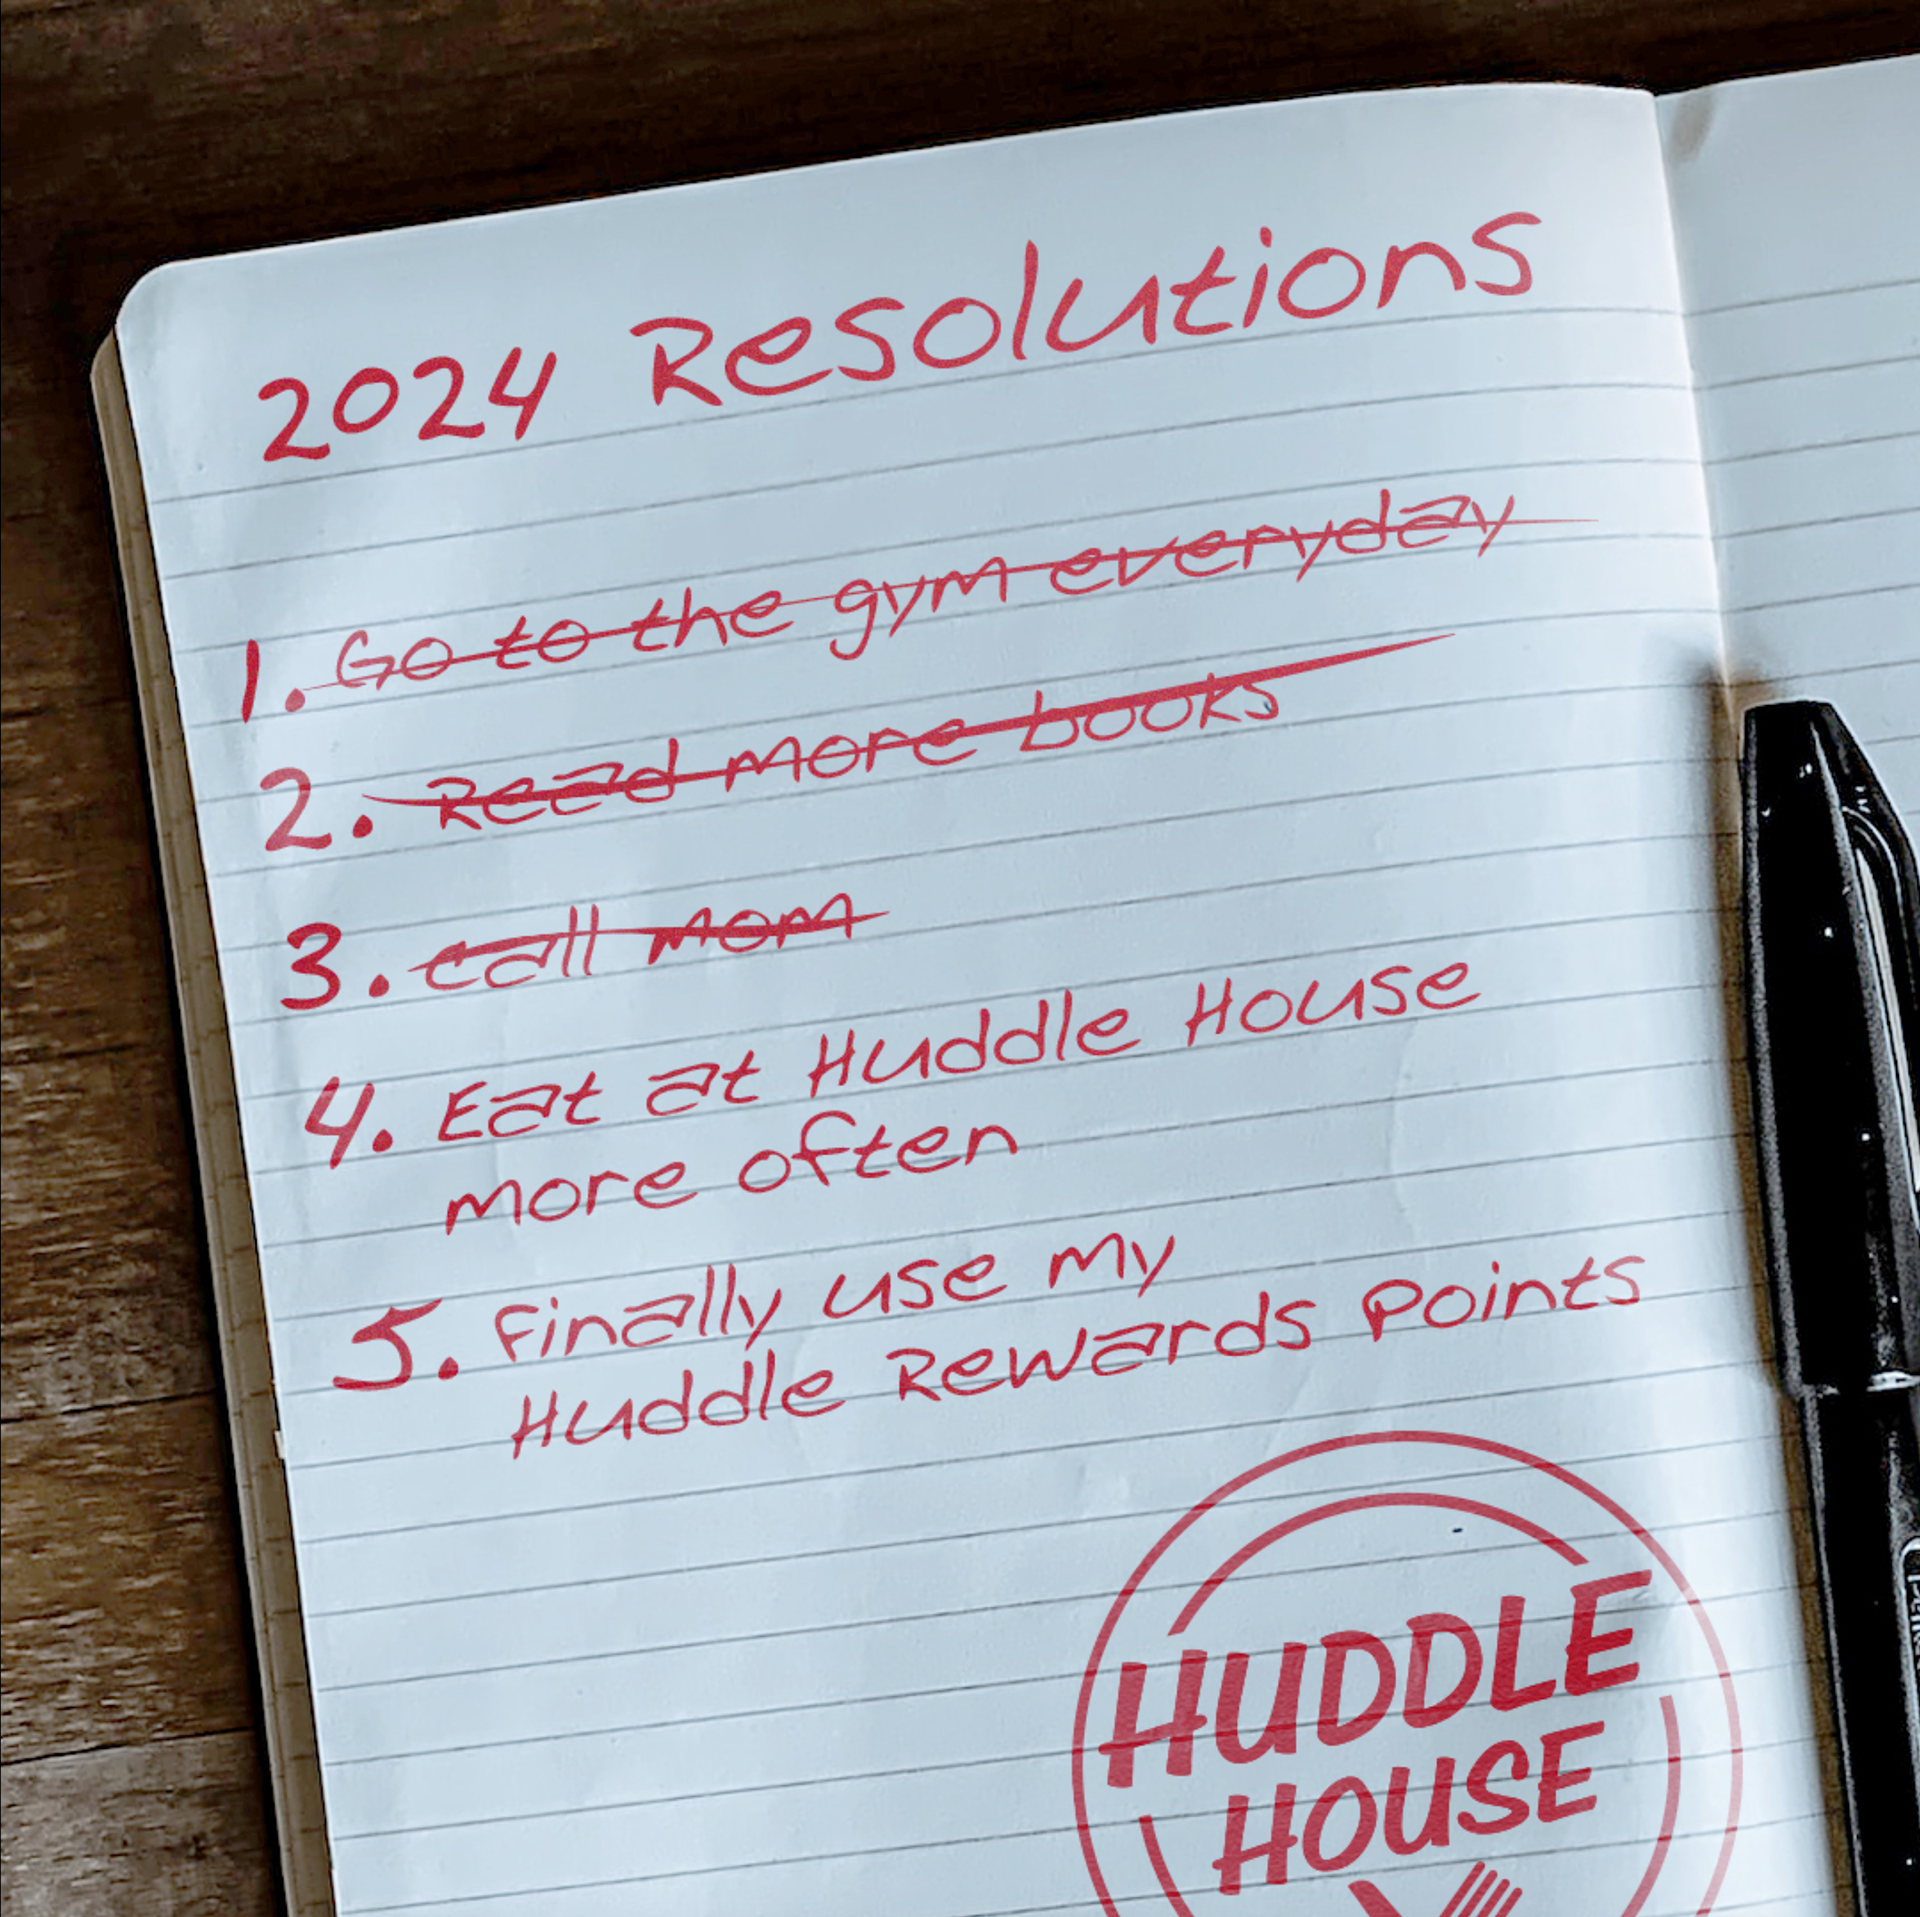 2024 Resolutions
1. Go to the gym everyday
2. Read more books
3. call mom
4. Eat at Huddle House
more often
5. Finally use my
Huddle Rewards Points
HUDDLE
HOUSE